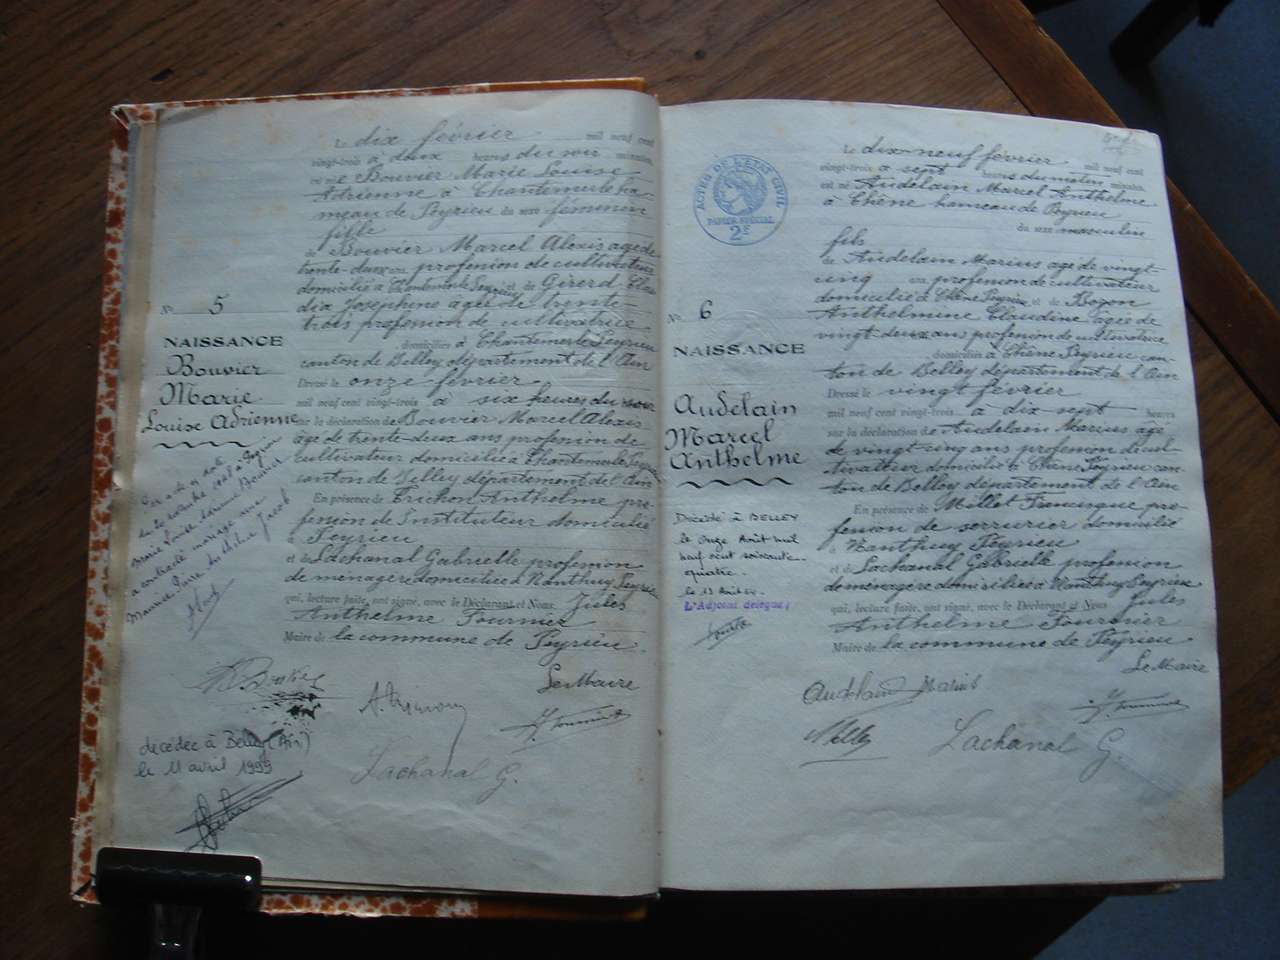 Le dix février mil neuf cent
vingt-trois à deux heures du soir minutes,
est né e Bouvier Marie Louise
Adrienne à Chantemerle ha
meau de Peyrieu du sexe féminin
fille
de Bouvier Marcel Alexis age de
trente-deux ans profession de cultivateur
domicilié à Chantemerle Peyrieu et de Girerd Clau
dia Josephine agée de trente
trois profession de cultivatrice
domiciliés à Chantemerle Peyrieu
canton de Belley département de l'Ain
Dressé le onze février
mil neuf cent vingt-trois à six heures du soir
sur la déclaration de Bouvier Marcel Alexis
age de trente-deux ans profession de
cultivateur domicilié à Chantemerle Peyrieu
canton de Belley département de l'Ain
En présence de Anthelme pro
fession de Instituteur domicilié
à Peyrieu
et de Lachanal Gabrielle profession
de ménagère domiciliée à Nanthuy Peyrieu
qui, lecture faite, ont signé, avec le Déclarant et Nous Jules
Anthelme Fournier
Maire de la commune de Peyrieu
Le Maire
Lachanal G.
N° 5
NAISSANCE
Bouvier
Marie
Louise Adrienne
a contracté mariage avec
Maurice Pierre Anthelme Jacob
décédée à Belley (Ain)
le 11 avril 1999
ACTES DE L'ETAT CIVIL
PAPIER SPÉCIAL
2F
Le dix-neuf février mil neuf cent
vingt-trois à sept heures du matin minutes,
est né Audelain Marcel Anthelme
à Chêne hameau de Peyrieu
du sexe masculin
fils
de Audelain Marius age de vingt-
cinq ans profession de cultivateur
domicilié à Chêne Peyrieu et de Bogon
Anthelmine Claudine agée de
vingt deux ans profession de cultivatrice
domiciliés à Chêne Peyrieu can-
ton de Belley département de l'Ain
Dressé le vingt février
mil neuf cent vingt-trois à dix sept heures
sur la déclaration de Audelain Marius age
de vingt-cinq ans profession de cul-
tivateur domicilié à Chêne Peyrieu can-
ton de Belley département de l'Ain
En présence de Millet Francisque pro-
fession de serrurier domicilié
à Nanthuy Peyrieu
et de Lachanal Gabrielle profession
de ménagère domiciliée à Nanthuy Peyrieu
qui, lecture faite, ont signé, avec le Déclarant et Nous Jules
Anthelme Fournier
Maire de la commune de Peyrieu
Le Maire
Audelain Marius
Millet
Lachanal G.
N° 6
NAISSANCE
Audelain
Marcel
Anthelme
Décédé à BELLEY
le Onze Août mil
neuf cent soixante-
quatre.
le 13 Août 64.
L'Adjoint délégué,